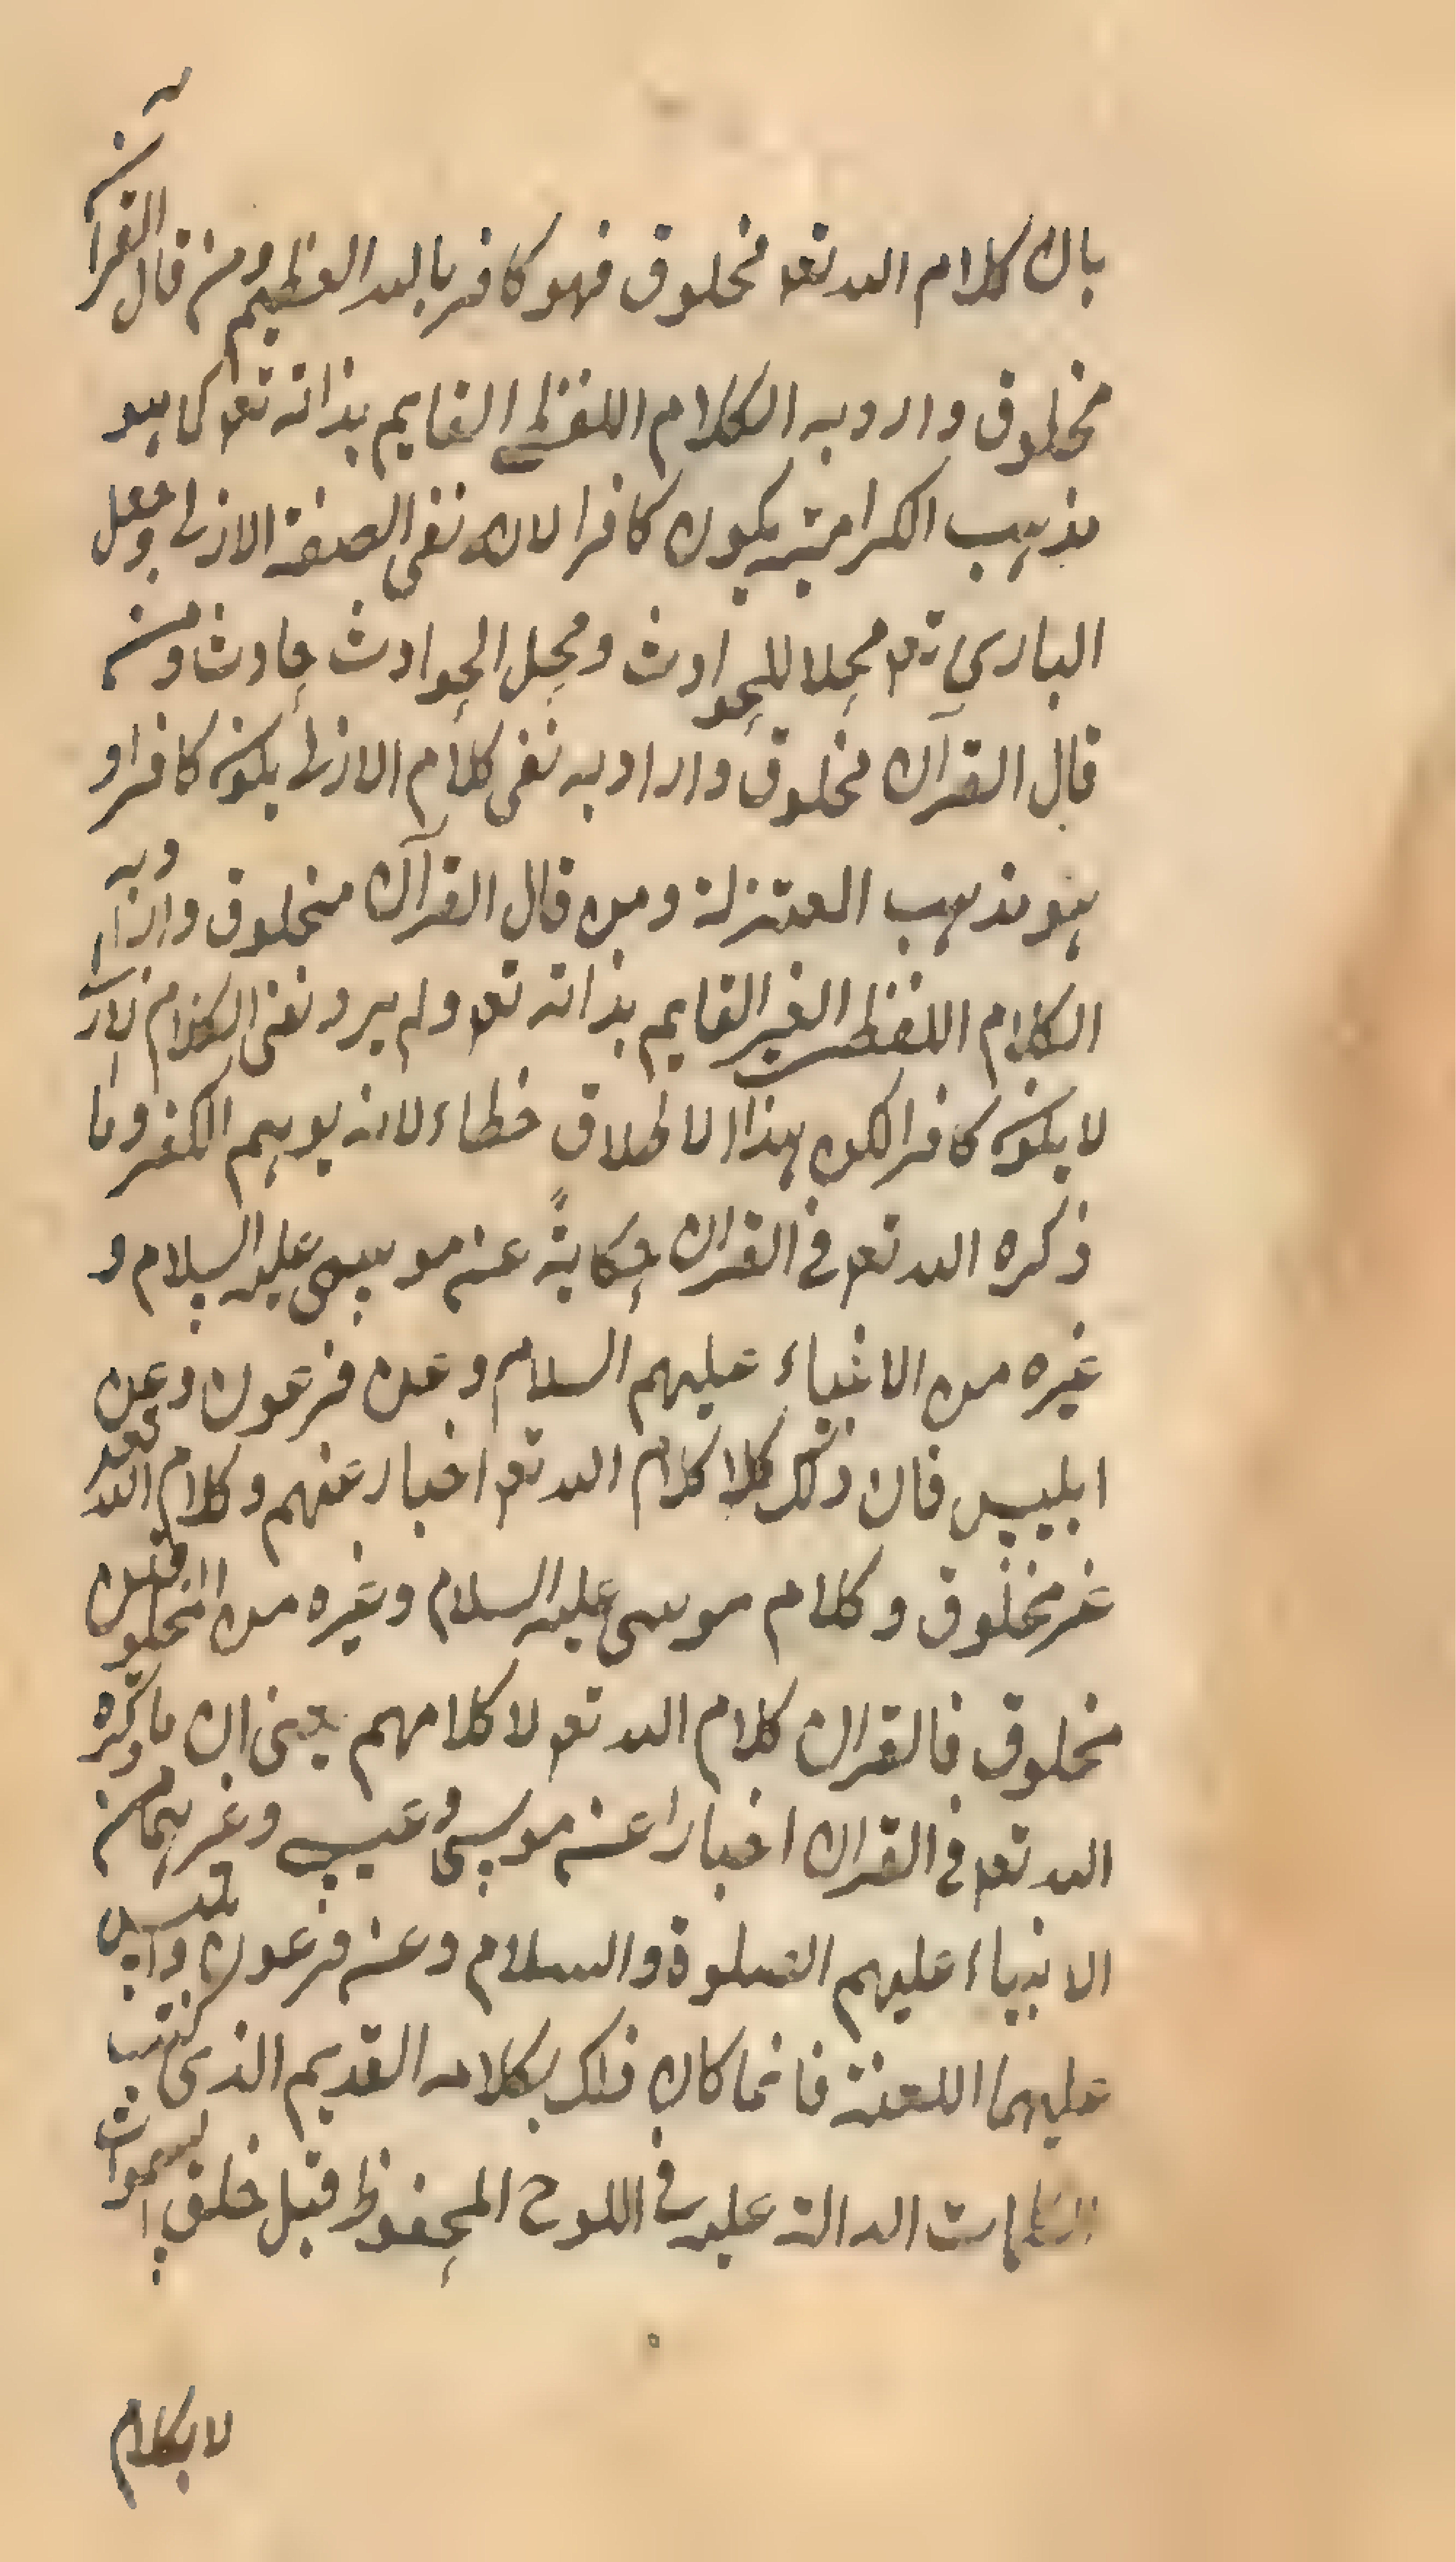 بان كلام الله تعه مخلوق فهو كافر بالله العظيم ومن قال القرآن
مخلوق واردبه الكلام اللفظي القايم بذاته تعه كما هو
مذهب الكرامية يكون كافرا لانه نفى الصفة الازلى وجعل
الباري تعه محلا للحوادث ومحل الحوادث حادث ومن
قال القرآن مخلوق واراد به نفى كلام الازلى يكون كافرا و
هو مذهب المعتزلة ومن قال القرآن مخلوق واراد به
الكلام اللفظى الغير القايم بذاته تعه ولم يرد نفى الكلام الازلى
لا يكون كافرا لكن هذا الاطلاق خطاء لانه يوهم الكفر وما
ذكره الله تعه فى القران حكايةً عن موسى عليه السلام و
غيره من الانبياء عليهم السلام وعن فرعون وعن
ابليس فان ذلك كلا كلام الله تعه اخبار عنهم وكلام الله تعه
غير مخلوق وكلام موسى عليه السلام وغيره من المخلوقين
مخلوق فالقران كلام الله تعه لا كلامهم يعنى ان ما ذكره
الله تعه فى القران اخبارا عن موسى وعيسى وغيرهما من
الانبياء عليهم الصلوة والسلام وعن فرعون وابليس
عليهما اللعنة فانما كان ذلك بكلامه القديم الذى كتب
الكلمات الدالة عليه فى اللوح المحفوظ قبل خلق السموات
لا بكلام